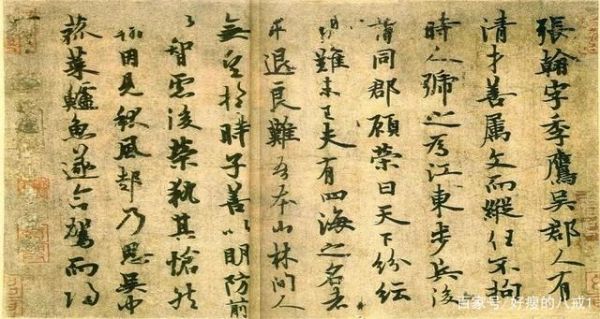 張翰字季鷹吳郡人有
清才善屬文而縱任不拘
時人號之為江東步兵後
謂同郡顧榮曰天下紛紜
禍難未已夫有四海之名者
求退良難吾本山林間人
無望於時子善以明防前
以智慮後榮執其愴然
翰因見秋風起乃思吳中
菰菜鱸魚遂命駕而歸
百家号/好瘦的八戒1